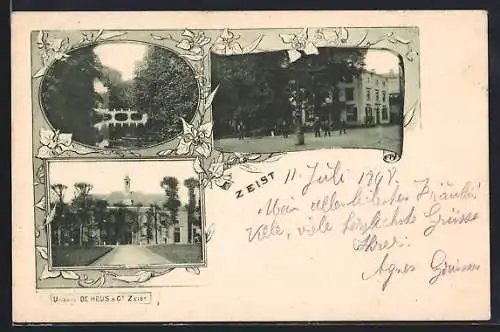 ZEIST
11. Juli 1898.
Mein allerliebstes Fräulein!
Viele, viele herzlichste Grüsse
Ihrer
Agnes
Uitgave DE HEUS & Co ZEIST